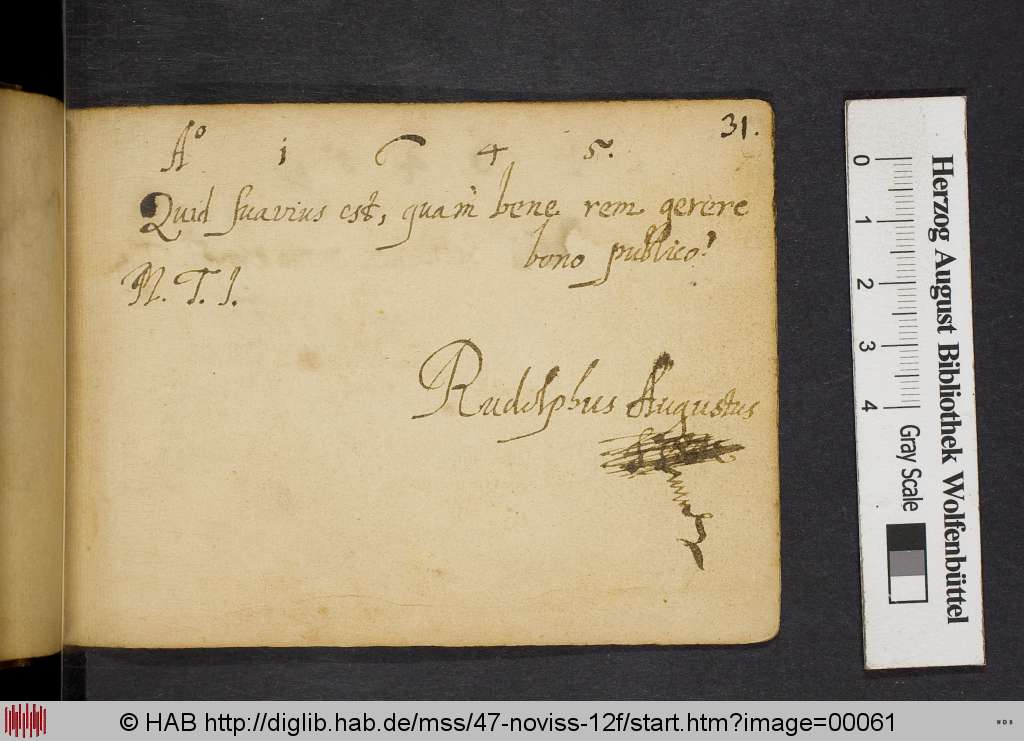 31.
Aº 1 6 4 5.
Quid suavius est, quàm bene rem gerere
bono publico?
N. T. I.
Rudolphus Augustus
0 1 2 3 4
Herzog August Bibliothek Wolfenbüttel
Gray Scale
© HAB http://diglib.hab.de/mss/47-noviss-12f/start.htm?image=00061